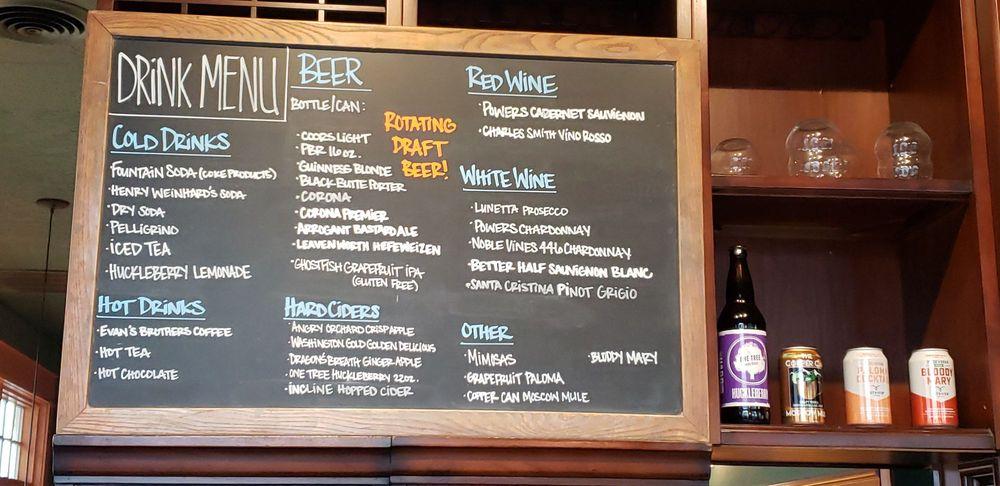 DRINK MENU
COLD DRINKS
FOUNTAIN SODA (COKE PRODUCTS)
• HENRY WEINHARD'S SODA
• DRY SODA
• PELLIGRINO
• ICED TEA
• HUCKLEBERRY LEMONADE
HOT DRINKS
• EVAN'S BROTHERS COFFEE
• HOT TEA
• HOT CHOCOLATE
BEER
BOTTLE/CAN:
• COORS LIGHT
• PBR 16 OZ.
• GUINNESS BLONDE
• BLACK BUTTE PORTER
• CORONA
• CORONA PREMIER
• ARROGANT BASTARD ALE
• LEAVENWORTH HEFEWEIZEN
• GHOSTFISH GRAPEFRUIT IPA
(GLUTEN FREE)
ROTATING
DRAFT
BEER!
HARD CIDERS
• ANGRY ORCHARD CRISP APPLE
• WASHINGTON GOLD GOLDEN DELICIOUS
• DRAGON'S BREATH GINGER APPLE
• ONE TREE HUCKLEBERRY 22OZ.
• INCLINE HOPPED CIDER
RED WINE
• POWERS CABERNET SAUVIGNON
• CHARLES SMITH VINO ROSSO
WHITE WINE
• LUNETTA PROSECCO
• POWERS CHARDONNAY
• NOBLE VINES 446 CHARDONNAY
• BETTER HALF SAUVIGNON BLANC
• SANTA CRISTINA PINOT GRIGIO
OTHER
• MIMOSAS
• BLOODY MARY
• GRAPEFRUIT PALOMA
• COPPER CAN MOSCOW MULE
ONE TREE
HUCKLEBERRY
COPPER CAN
MOSCOW MULE
PALOMA
COCKTAIL
BLOODY
MARY